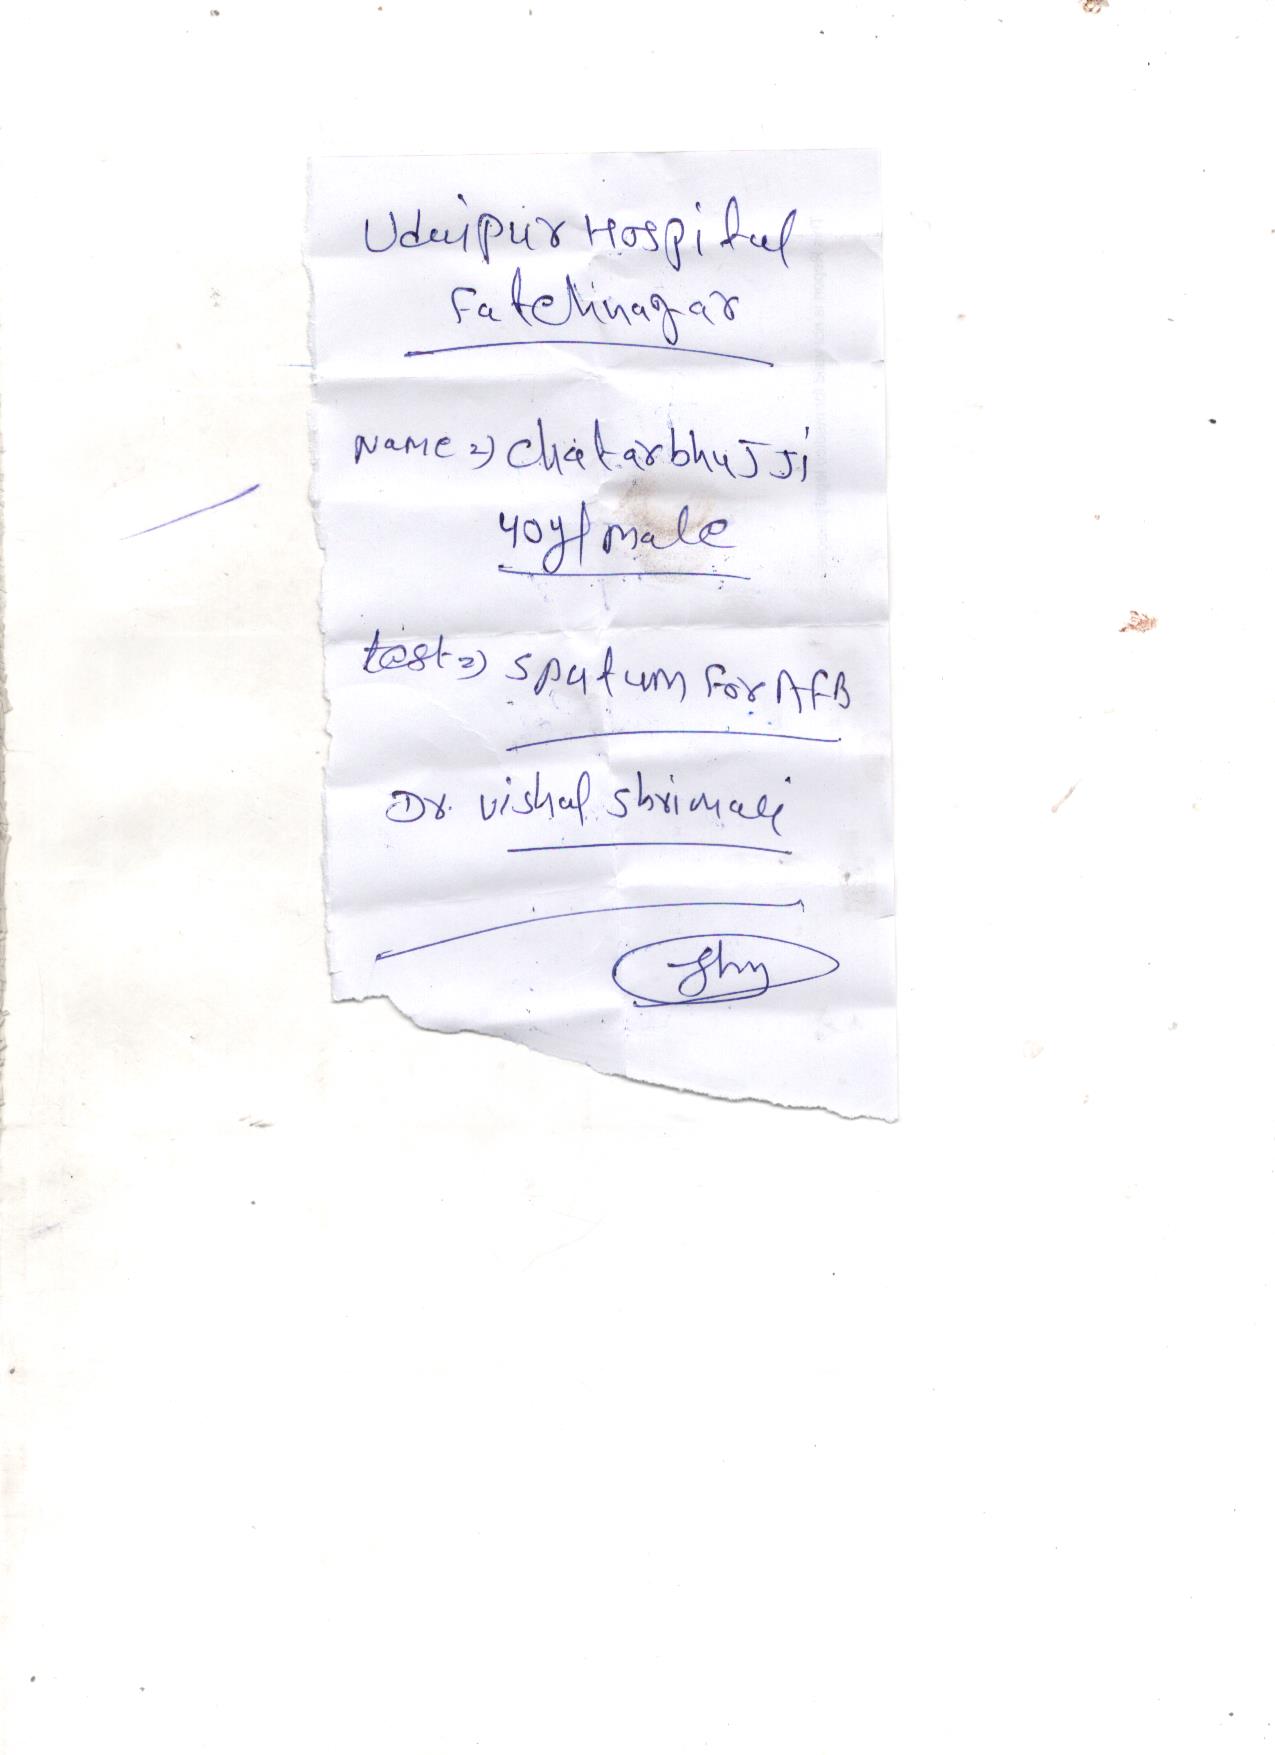 Udaipur Hospital
Fatehnagar
Name => Chatarbhuj Ji
40y/male
test => Sputum For AFB
Dr. Vishal Shrimali